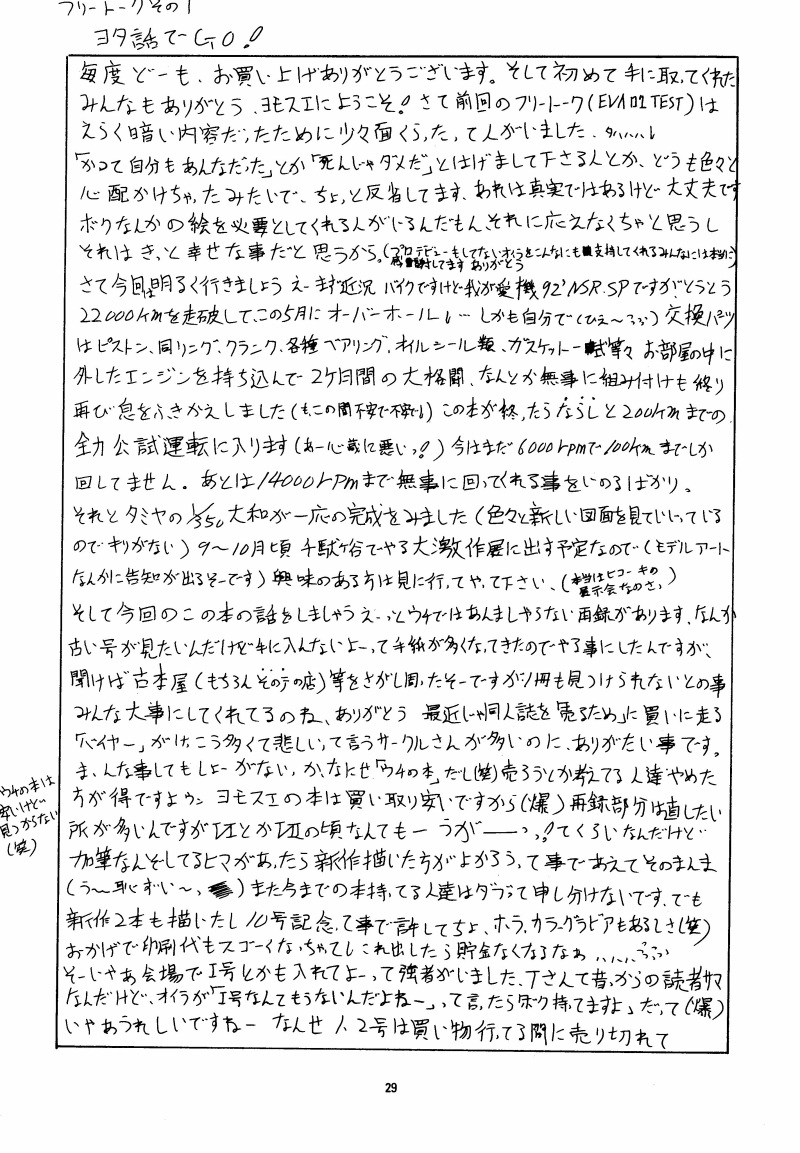 フリートークその1
ヨタ話でGO!
毎度どーも、お買い上げありがとうございます。そして初めて手に取ってくれた
みんなもありがとう、ヨモスエにようこそ! さて前回のフリートーク(EVA 02 TEST)は
えらく暗い内容だったために少々面くらったって人がいました、タハハハ
「かつて自分もあんなだった」とか「死んじゃダメだ」とはげまして下さる人とか、どうも色々と
心配かけちゃったみたいで、ちょっと反省してます、あれは真実ではあるけど大丈夫です
ボクなんかの絵を必要としてくれる人がいるんだもん、それに応えなくちゃと思うし
それはきっと幸せな事だと思うから。(プロデビューもしてないオイラをこんなにも支持してくれるみんなには本当に
感謝してます ありがとう
さて今回は明るく行きましょう えーまず近況 バイクですけど我が愛機92'NSR.SPですがとうとう
22000kmを走破して、この5月にオーバーホールし… しかも自分で(ひぇ〜ふふ) 交換パーツ
はピストン、同リング、クランク、各種ベアリング、オイルシール類、ガスケット一式等々 お部屋の中に
外したエンジンを持ち込んで2ケ月間の大格闘、なんとか無事に組み付けも終り
再び息をふきかえしました(もこの間不安で不安で) この本が終ったらならしと200kmまでの
全力公試運転に入ります(あー心蔵に悪いっ!) 今はまだ6000rpmで100kmまでしか
回してません。あとは14000rpmまで無事に回ってくれる事をいのるばかり。
それとタミヤの1/350大和が一応の完成をみました(色々と新しい図面を見ていじっている
のでキリがない) 9〜10月頃 千駄ヶ谷でやる大激作展に出す予定なので(モデルアート
なんかに告知が出るそーです) 興味のある方は見に行ってやって下さい、(本当はヒコーキの
展示会なのさっ)
そして今回のこの本の話をしましゃう えーっとウチではあんましやらない再録があります、なんか
古い号が見たいんだけど手に入んないよーって手紙が多くなってきたのでやる事にしたんですが、
聞けば古本屋(もちろんその手の店)等をさがし周ったそーですが1冊も見つけられないとの事
みんな大事にしてくれてるのね、ありがとう 最近じゃ同人誌を「売るため」に買いに走る
「バイヤー」がけっこう多くて悲しいって言うサークルさんが多いのに、ありがたい事です。
ま、んな事してもしょーがないっか、なにせ「ウチの本」だし(笑)売ろうとか考えてる人達やめた
方が得ですよゥン ヨモスエの本は買い取り安いですから(爆) 再録部分は直したい
所が多いんですがIエとかIIの頃なんてもーうが――っっ!てくらいなんだけど
加筆なんぞしてるヒマがあったら新作描いたちがよかろうって事であえてそのまんま
(う〜恥ずい〜) また今までの本持ってる人達はダブって申し分けないです、でも
新作2本も描いたし10号記念って事で許してちょ、ホラ、カラーグラビアもあるしさ(笑)
おかげで印刷代もスゴーくなっちゃてし これ出したら貯金なくなるなぁ、、、、、ふふ
そーいやあ会場でI号とかも入れてよーって強者がいました、Tさんて昔っからの読者サマ
なんだけど、オイラが「I号なんてもうないんだよねー」って言ったら「ボク持てますよ」だって(爆)
いやあうれしいですねー なんせ1、2号は買い物行ってる間に売り切れて
ウチの本は
安いけど
見つからない
(笑)
29